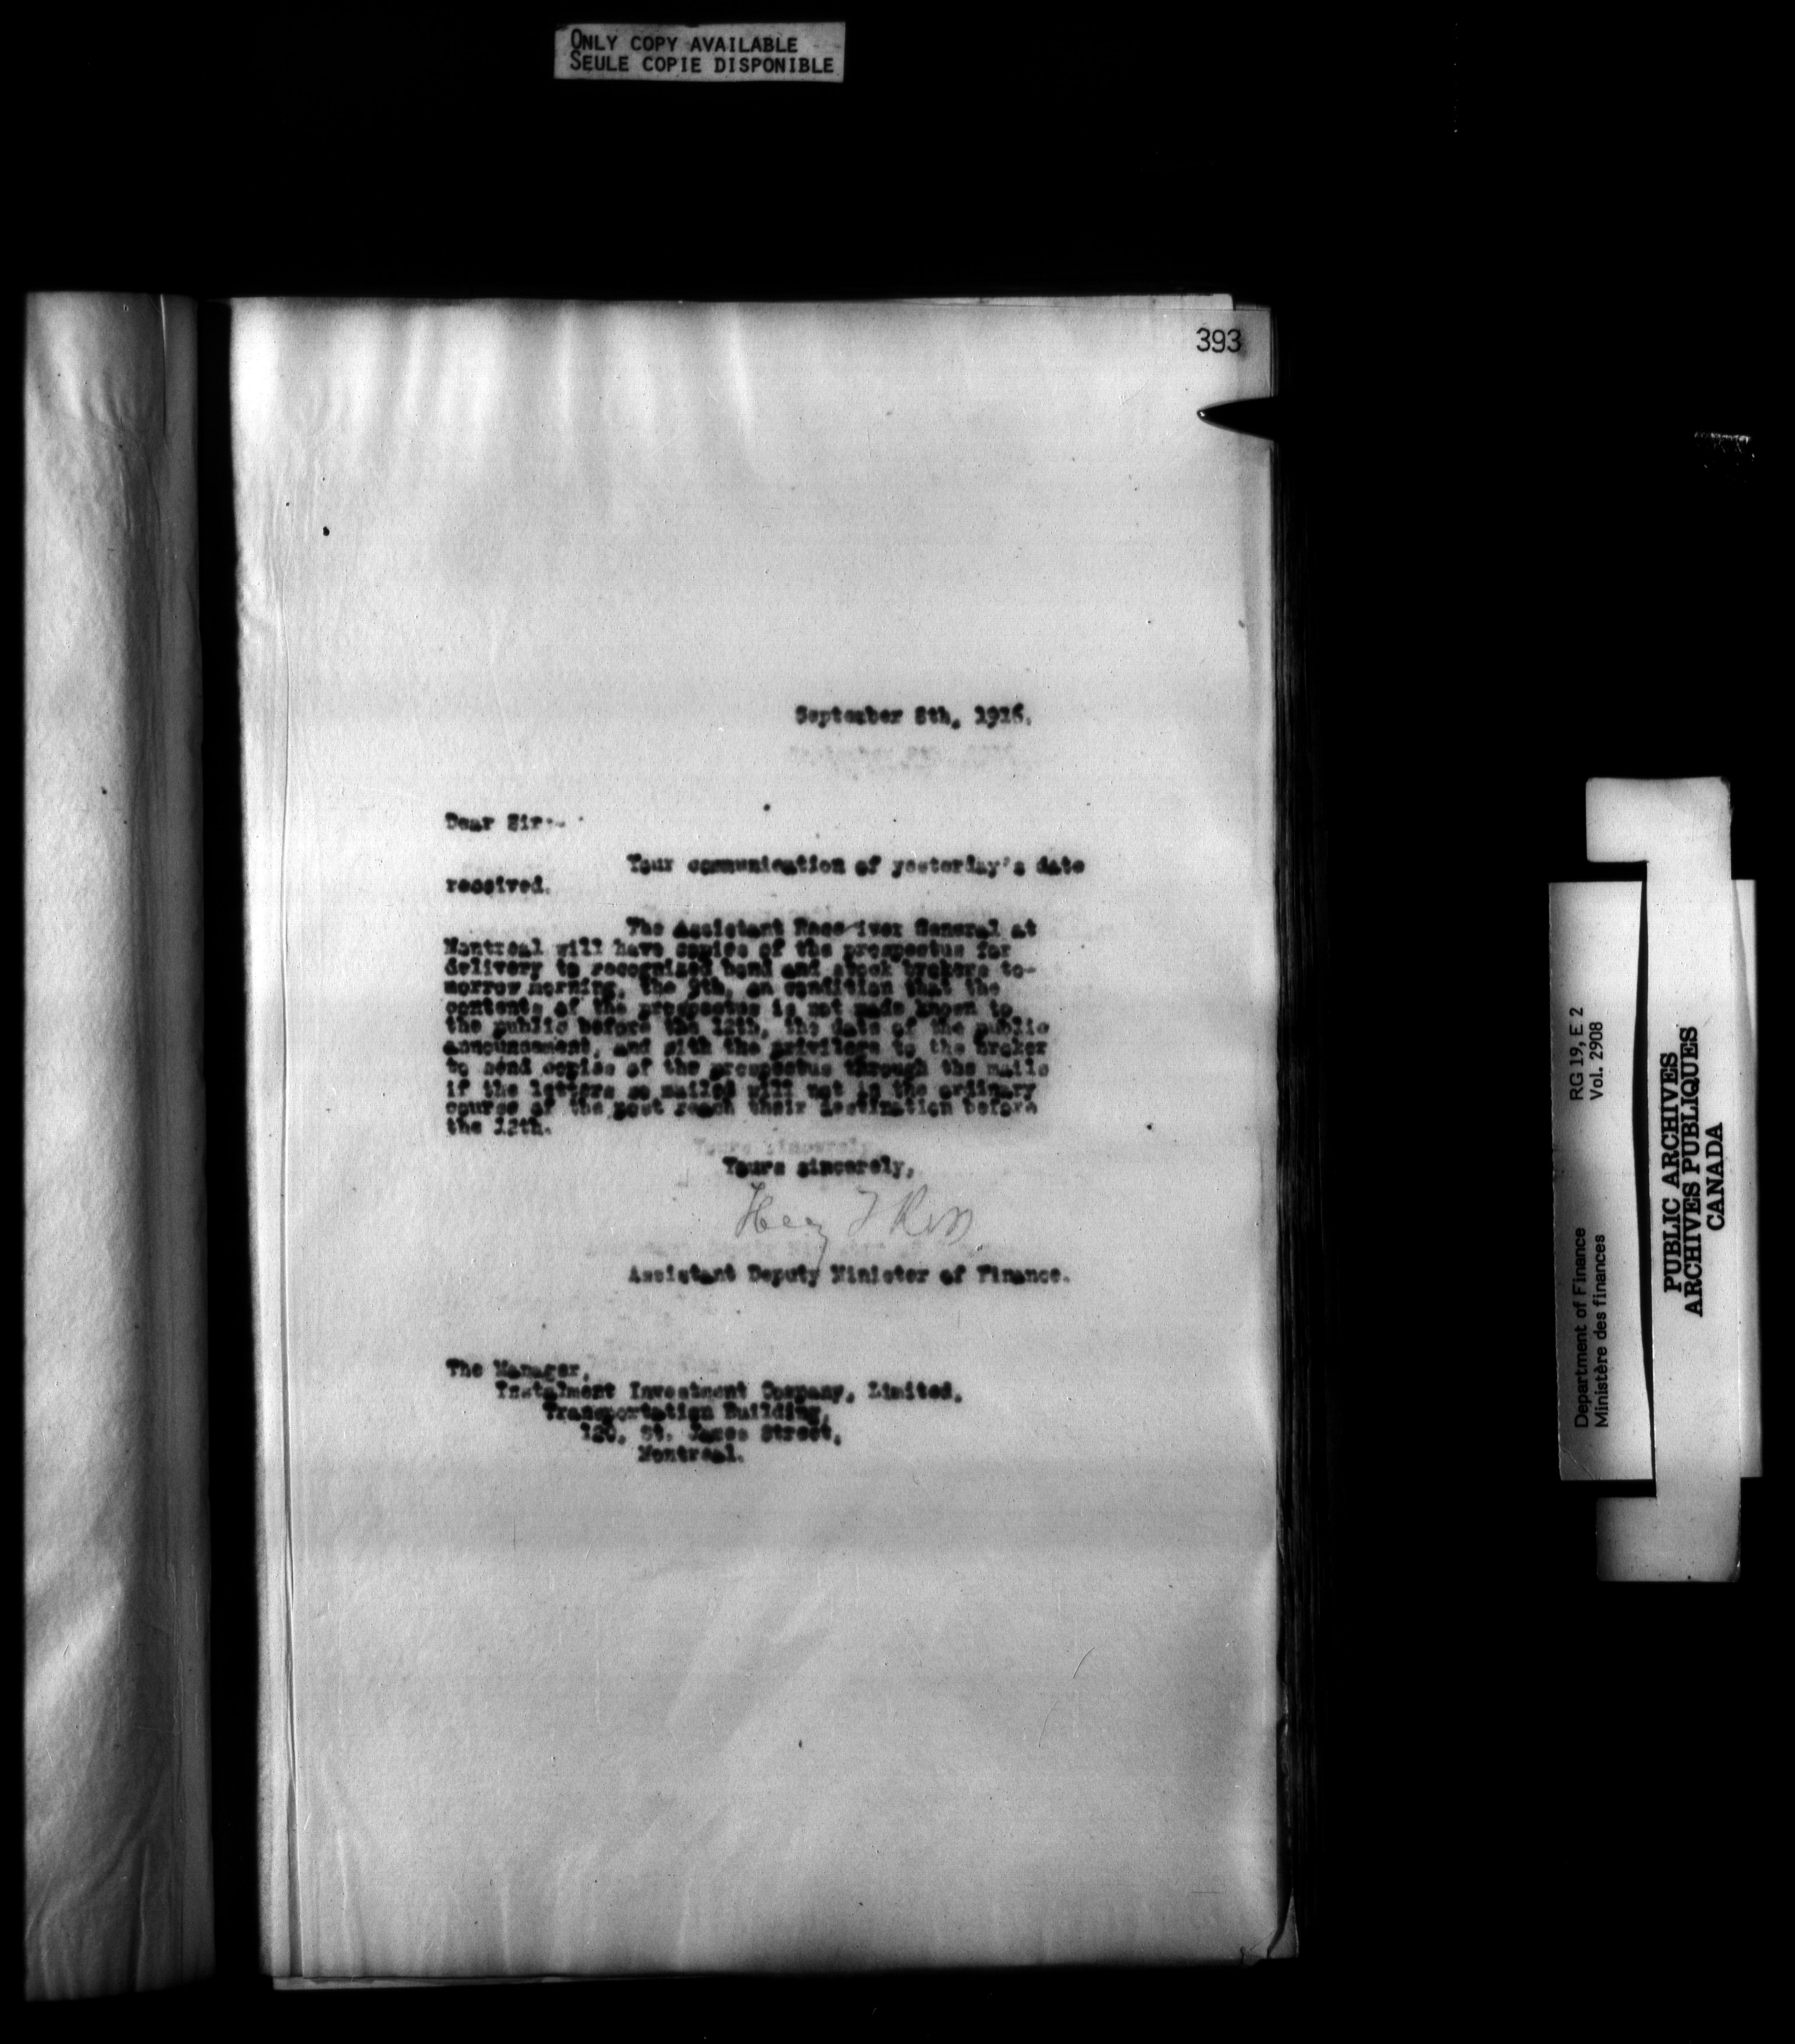 ONLY COPY AVAILABLE
SEULE COPIE DISPONIBLE
393
September 8th, 1916.
Dear Sir:-
Your communication of yesterday's date
received.
The Assistant Receiver General at
Montreal will have copies of the prospectus for
delivery to recognized bond and stock brokers to-
morrow morning, the 9th, on condition that the
contents of the prospectus is not made known to
the public before the 12th, the date of the public
announcement, and with the privilege to the broker
to send copies of the prospectus through the mails
if the letters so mailed will not in the ordinary
course of the post reach their destination before
the 12th.
Yours sincerely,
Henry T Ross
Assistant Deputy Minister of Finance.
The Manager,
Instalment Investment Company, Limited,
Transportation Building,
120, St. James Street,
Montreal.
Department of Finance RG 19, E 2
Ministère des finances Vol. 2908
PUBLIC ARCHIVES
ARCHIVES PUBLIQUES
CANADA